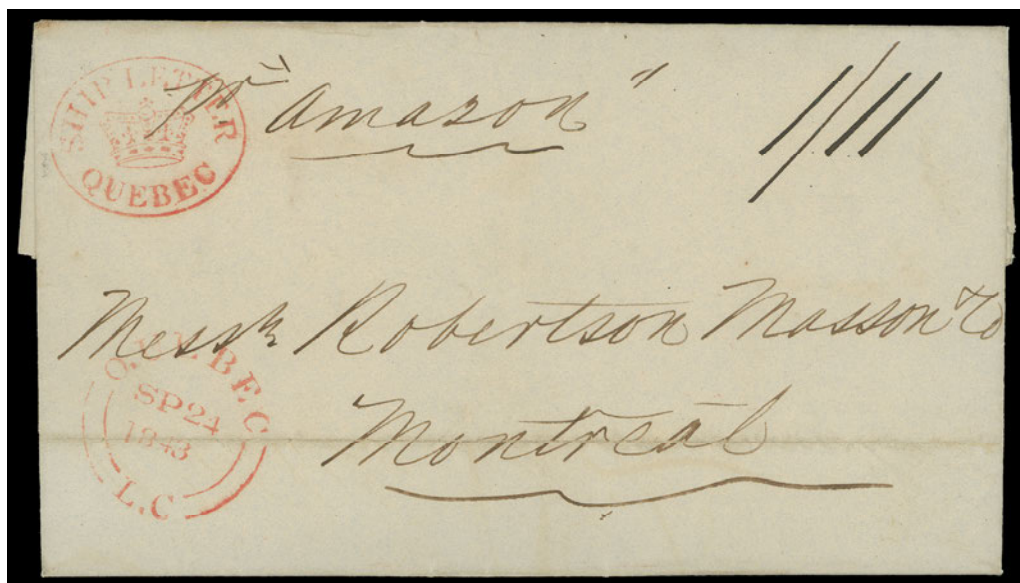 SHIP LETTER
QUEBEC
Pr "Amazon"
1/11
Messrs Robertson Masson & Co
Montreal
QUEBEC
SP 24
1843
L.C